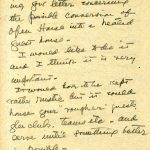 ing your letter concerning
the possible conversion of
Open House into a heated
guest house.
I would like to do it
and I think it is very
important.
It would have to be kept
rather rustic but it could
house your "rougher" guests,
glee clubs, teams etc - and
serve until something better